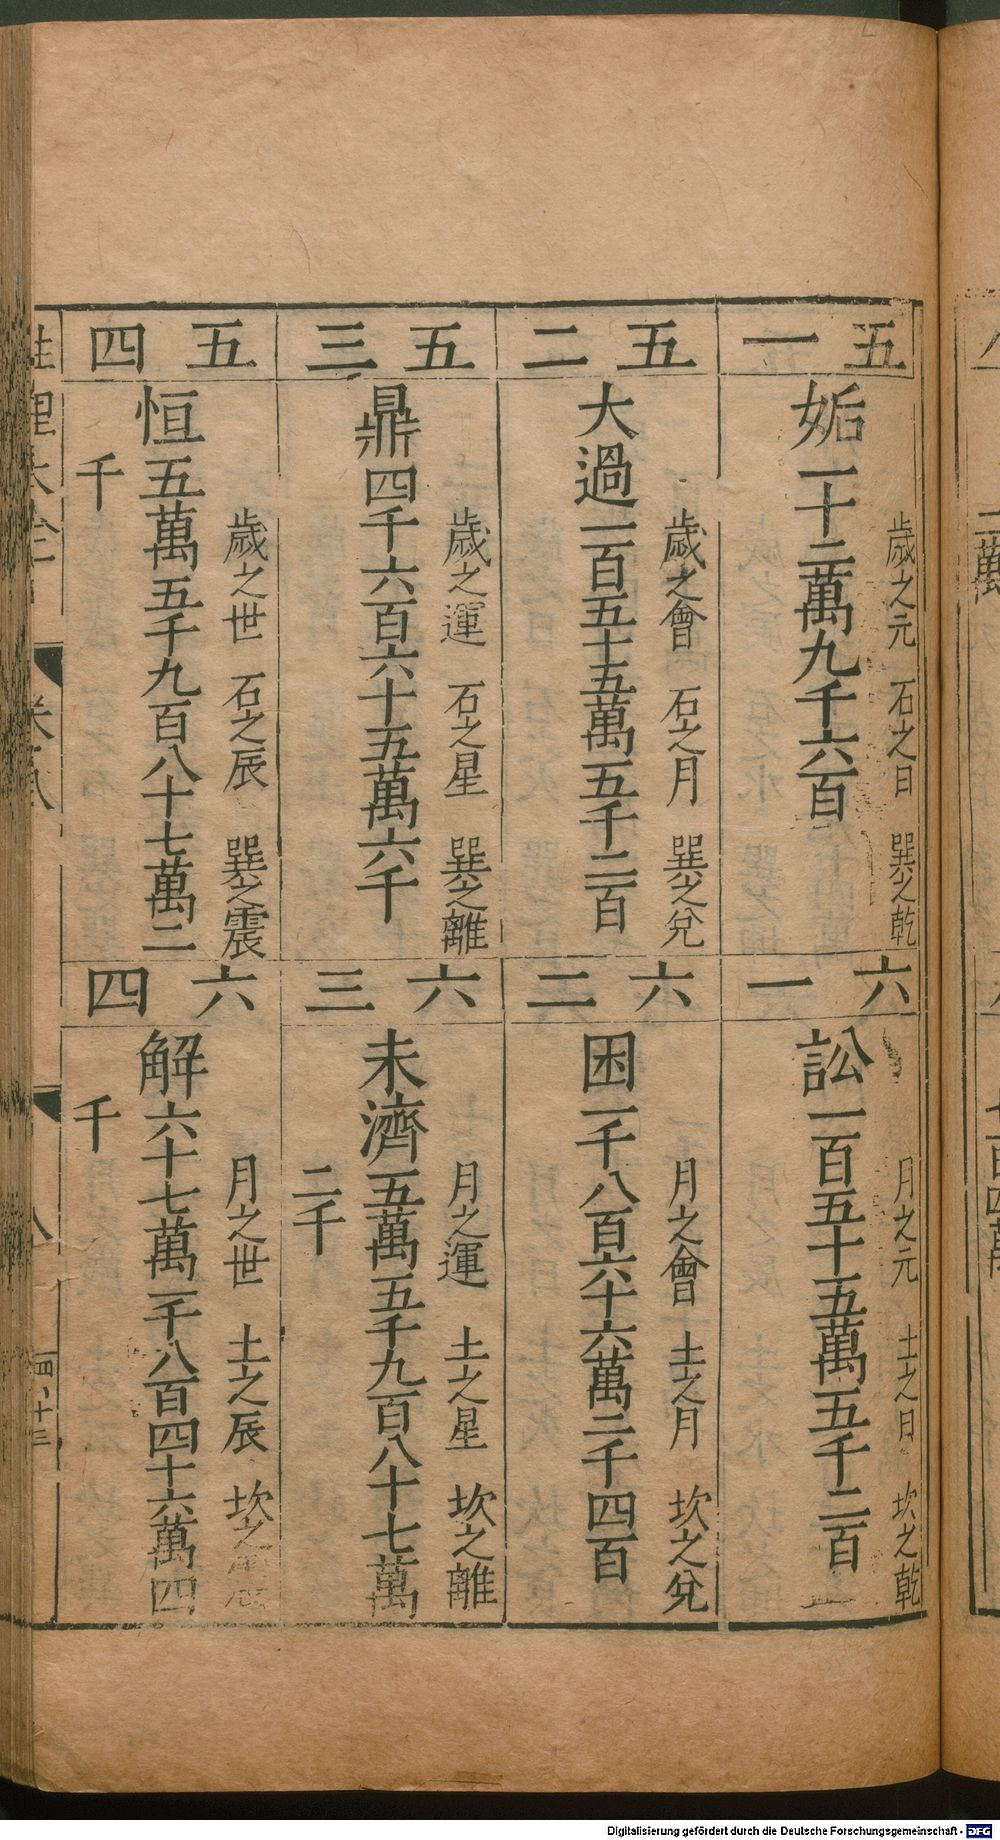 五一
歲之元 石之日 巽之乾
姤一十二萬九千六百
五二
歲之會 石之月 巽之兌
大過一百五十五萬五千二百
五三
歲之運 石之星 巽之離
鼎四千六百六十五萬六千
五四
歲之世 石之辰 巽之震
恒五萬五千九百八十七萬二
千
六一
月之元 土之日 坎之乾
訟一百五十五萬五千二百
六二
月之會 土之月 坎之兌
困一千八百六十六萬二千四百
六三
月之運 土之星 坎之離
未濟五萬五千九百八十七萬
二千
六四
月之世 土之辰 坎之震
解六十七萬一千八百四十六萬四
千
性理大全 八
Digitalisierung gefördert durch die Deutsche Forschungsgemeinschaft - DFG